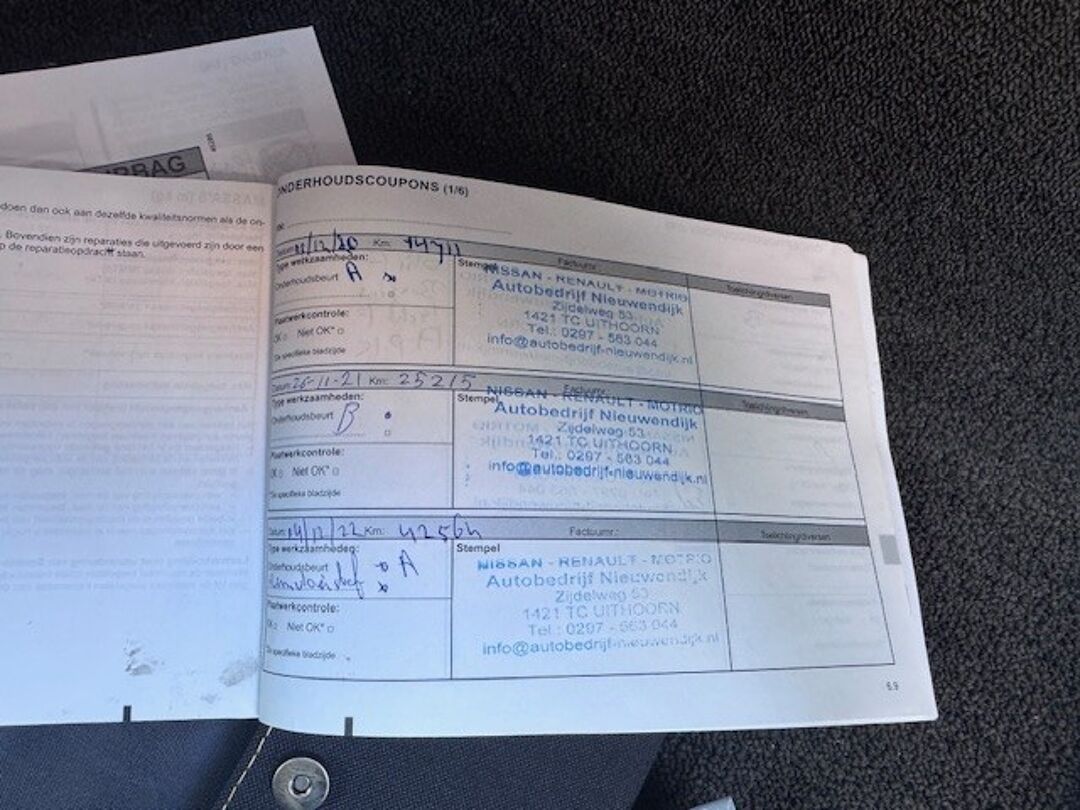 doen dan ook aan dezelfde kwaliteitsnormen als de on-
Bovendien zijn reparaties die uitgevoerd zijn door een
p de reparatieopdracht staan.
ONDERHOUDSCOUPONS (1/6)
Datum: /12/20 Km: 14711 Factuurnr.: Toelichting/diversen
Type werkzaamheden:
Onderhoudsbeurt A
Plaatwerkcontrole:
OK Niet OK*
*Zie specifieke bladzijde
Stempel
NISSAN - RENAULT - MOTRIO
Autobedrijf Nieuwendijk
Zijdelweg 53
1421 TC UITHOORN
Tel.: 0297 - 563 044
info@autobedrijf-nieuwendijk.nl
Datum: 26-11-21 Km: 25215 Factuurnr.: Toelichting/diversen
Type werkzaamheden:
Onderhoudsbeurt B
Plaatwerkcontrole:
OK Niet OK*
*Zie specifieke bladzijde
Stempel
NISSAN - RENAULT - MOTRIO
Autobedrijf Nieuwendijk
Zijdelweg 53
1421 TC UITHOORN
Tel.: 0297 - 563 044
info@autobedrijf-nieuwendijk.nl
Datum: 14/12/22 Km: 42564 Factuurnr.: Toelichting/diversen
Type werkzaamheden:
Onderhoudsbeurt A
Plaatwerkcontrole:
OK Niet OK*
*Zie specifieke bladzijde
Stempel
NISSAN - RENAULT - MOTRIO
Autobedrijf Nieuwendijk
Zijdelweg 53
1421 TC UITHOORN
Tel.: 0297 - 563 044
info@autobedrijf-nieuwendijk.nl
6.9